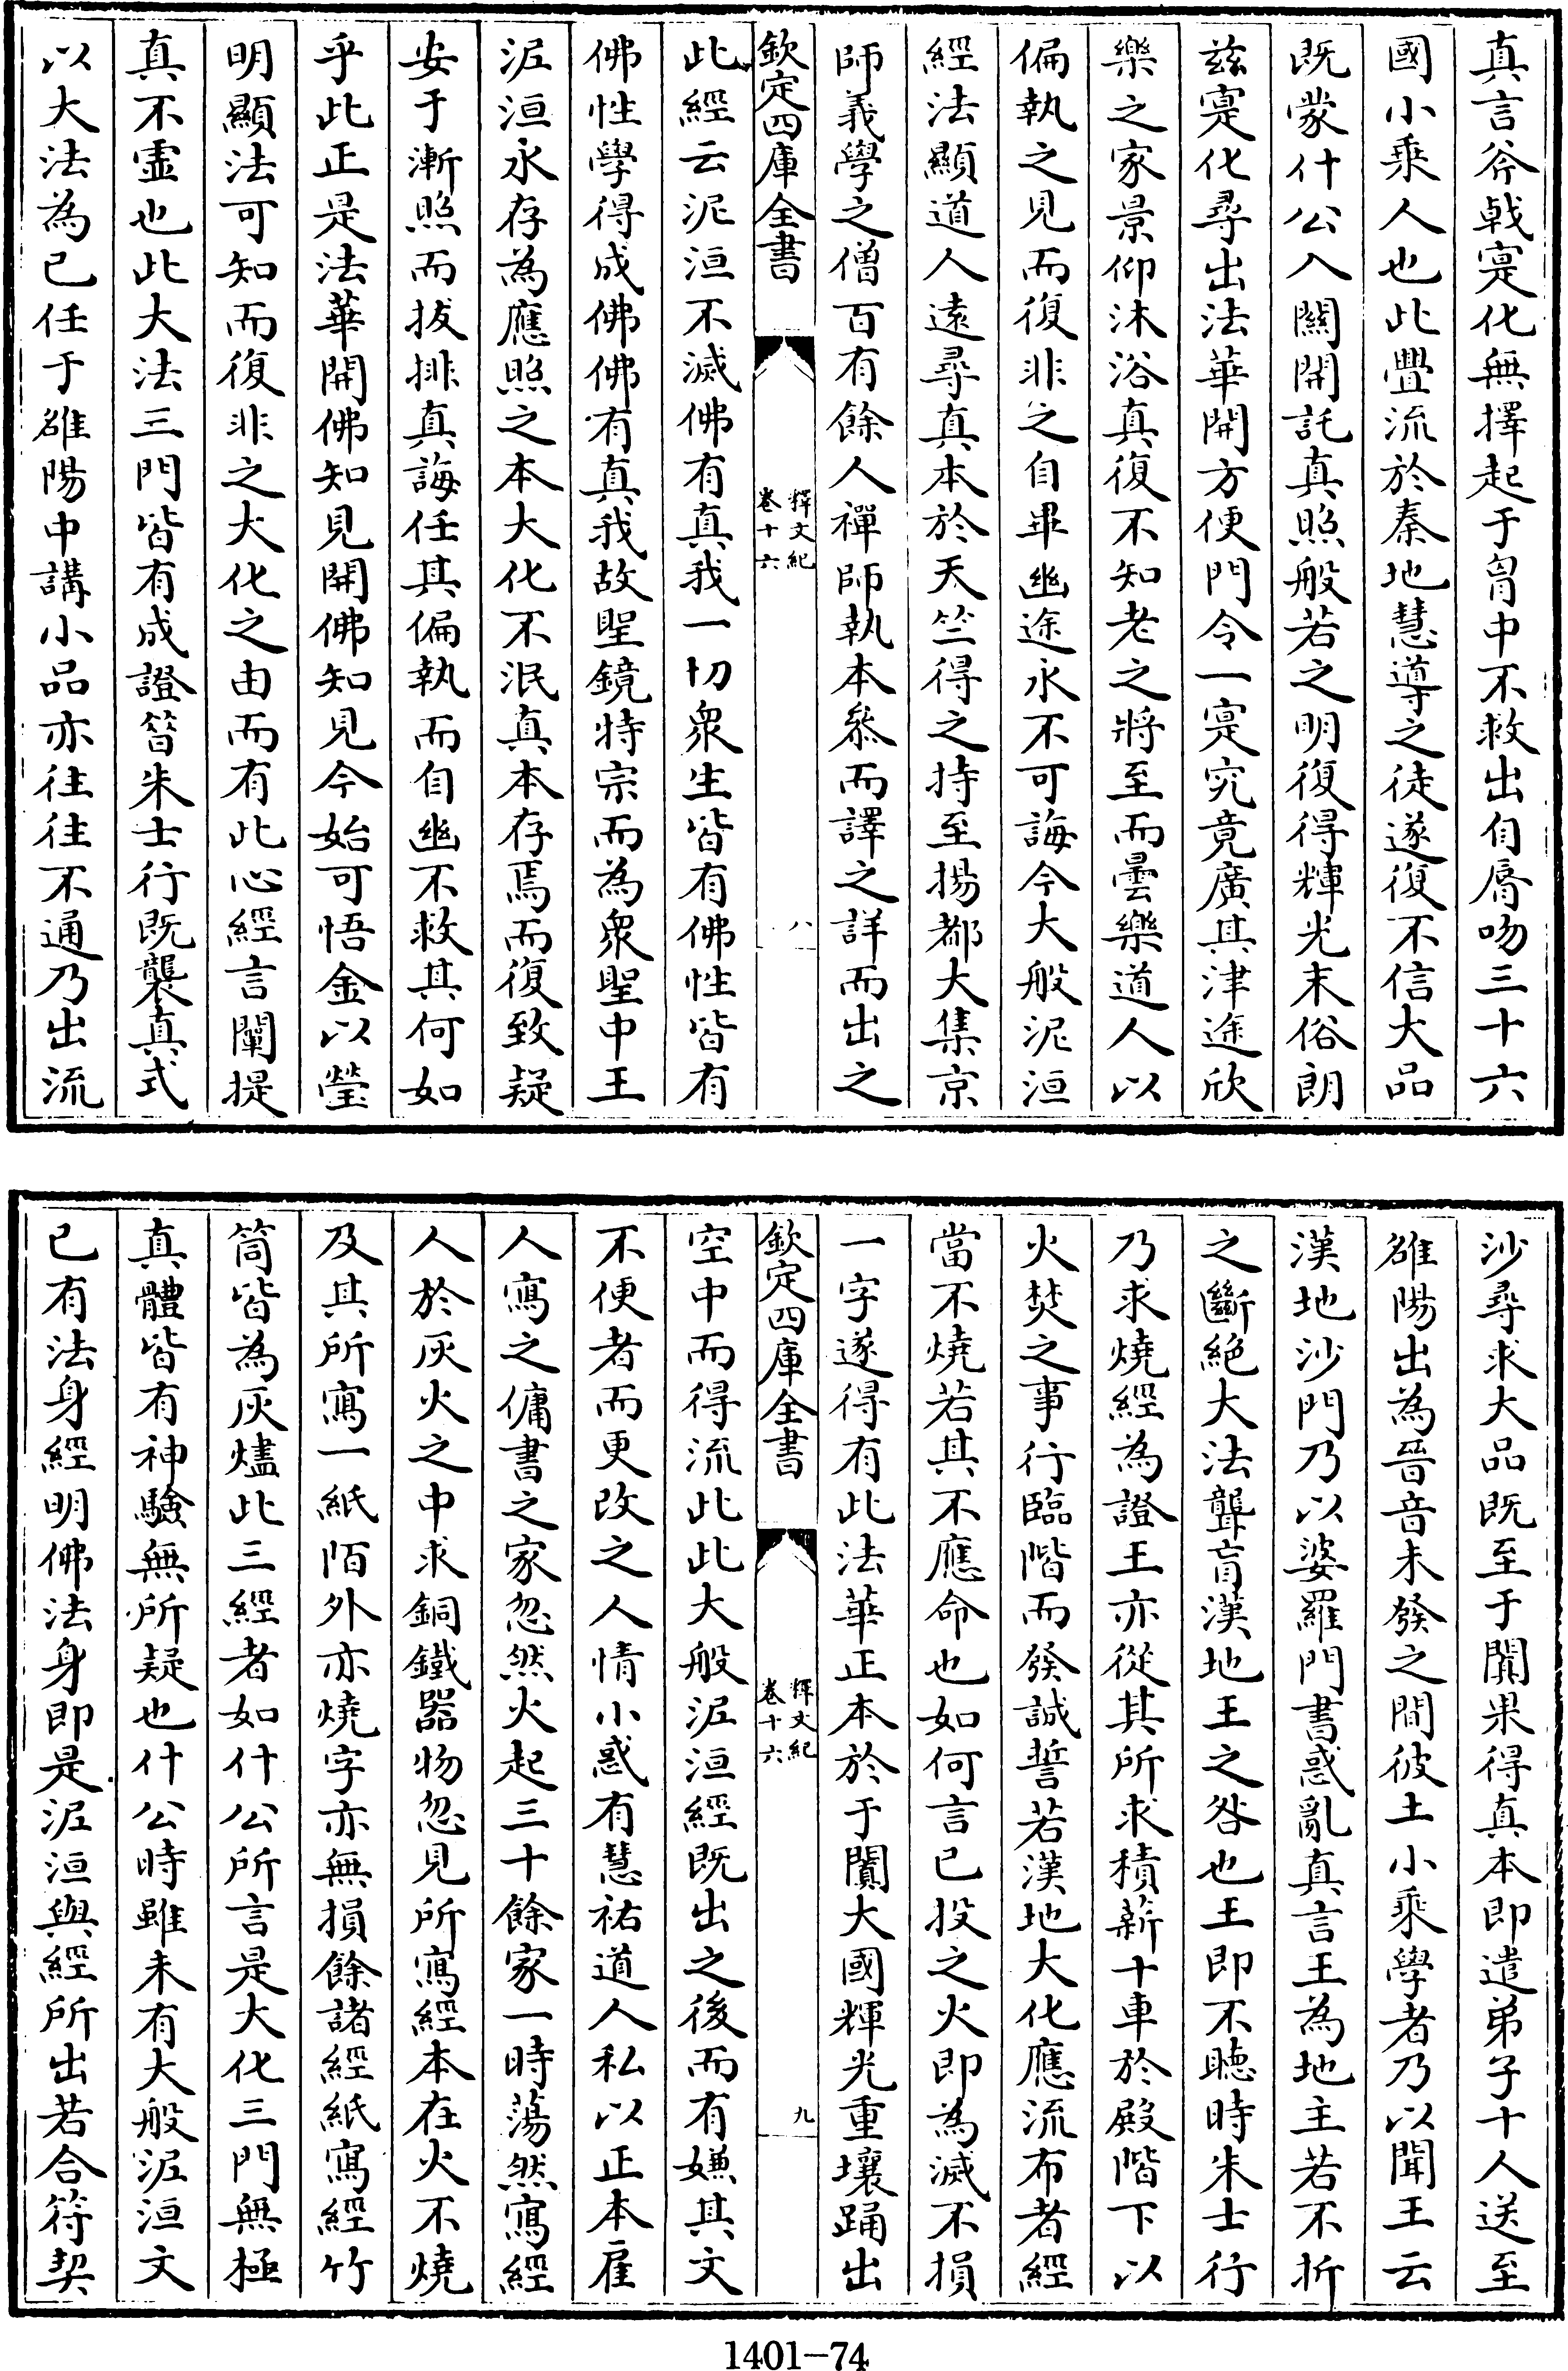 真言斧戟寔化無擇起于胷中不救出自脣吻三十六
國小乗人也此舋流於秦地慧導之徒遂復不信大品
既蒙什公入闗開託真照般若之明復得輝光末俗朗
兹寔化尋出法華開方便門令一寔究竟廣其津途欣
樂之家景仰沐浴真復不知老之將至而曇樂道人以
偏執之見而復非之自畢幽途永不可誨今大般泥洹
經法顯道人遠尋真本於天竺得之持至揚都大集京
師義學之僧百有餘人禪師執本叅而譯之詳而出之
欽定四庫全書
釋文紀
卷十六
八
此經云泥洹不滅佛有真我一切衆生皆有佛性皆有
佛性學得成佛佛有真我故聖鏡特宗而為衆聖中王
泥洹永存為應照之本大化不泯真本存焉而復致疑
安于漸照而拔排真誨任其偏執而自幽不救其何如
乎此正是法華開佛知見開佛知見今始可悟金以瑩
明顯法可知而復非之大化之由而有此心經言闡提
真不虛也此大法三門皆有成證昝朱士行既襲真式
以大法為已任于雒陽中講小品亦往往不通乃出流
沙尋求大品既至于闐果得真本即遣弟子十人送至
雒陽出為晉音未發之間彼土小乗學者乃以聞王云
漢地沙門乃以婆羅門書惑亂真言王為地主若不折
之斷絶大法聾盲漢地王之咎也王即不聴時朱士行
乃求燒經為證王亦從其所求積薪十車於殿階下以
火焚之事行臨階而發誠誓若漢地大化應流布者經
當不燒若其不應命也如何言已投之火即為滅不損
一字遂得有此法華正本於于闐大國輝光重壤踊出
欽定四庫全書
釋文紀
卷十六
九
空中而得流此此大般泥洹經既出之後而有嫌其文
不便者而更改之人情小惑有慧祐道人私以正本雇
人寫之傭書之家忽然火起三十餘家一時蕩然寫經
人於灰火之中求銅鐵器物忽見所寫經本在火不燒
及其所寫一紙陌外亦燒字亦無損餘諸經紙寫經竹
筒皆為灰燼此三經者如什公所言是大化三門無極
真體皆有神驗無所疑也什公時雖未有大般泥洹文
已有法身經明佛法身即是泥洹與經所出若合符契
1401-74